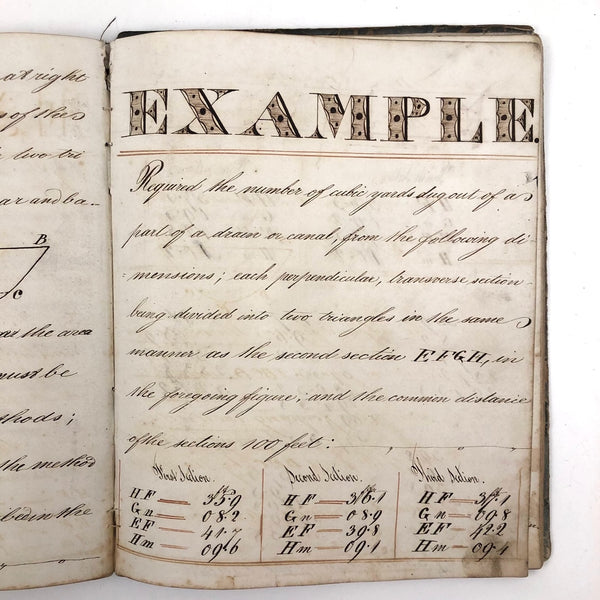 at right
s of the
two tri
ar and ba-
B
C
as the area
must be
thods;
the method
been the
EXAMPLE.
Required the number of cubic yards dug out of a
part of a drain or canal, from the following di-
-mensions; each perpendicular, transverse section
being divided into two triangles in the same
manner as the second section EFGH, in
the foregoing figure; and the common distance
of the sections 100 feet:
First Section. Second Section. Third Section.
HF — 35.0 HF — 36.1 HF — 37.1
Gn — 08.2 Gn — 08.9 Gn — 09.8
EF — EF — 39.8 EF — 42.2
Hm — 09.6 Hm — 09.1 Hm — 09.4